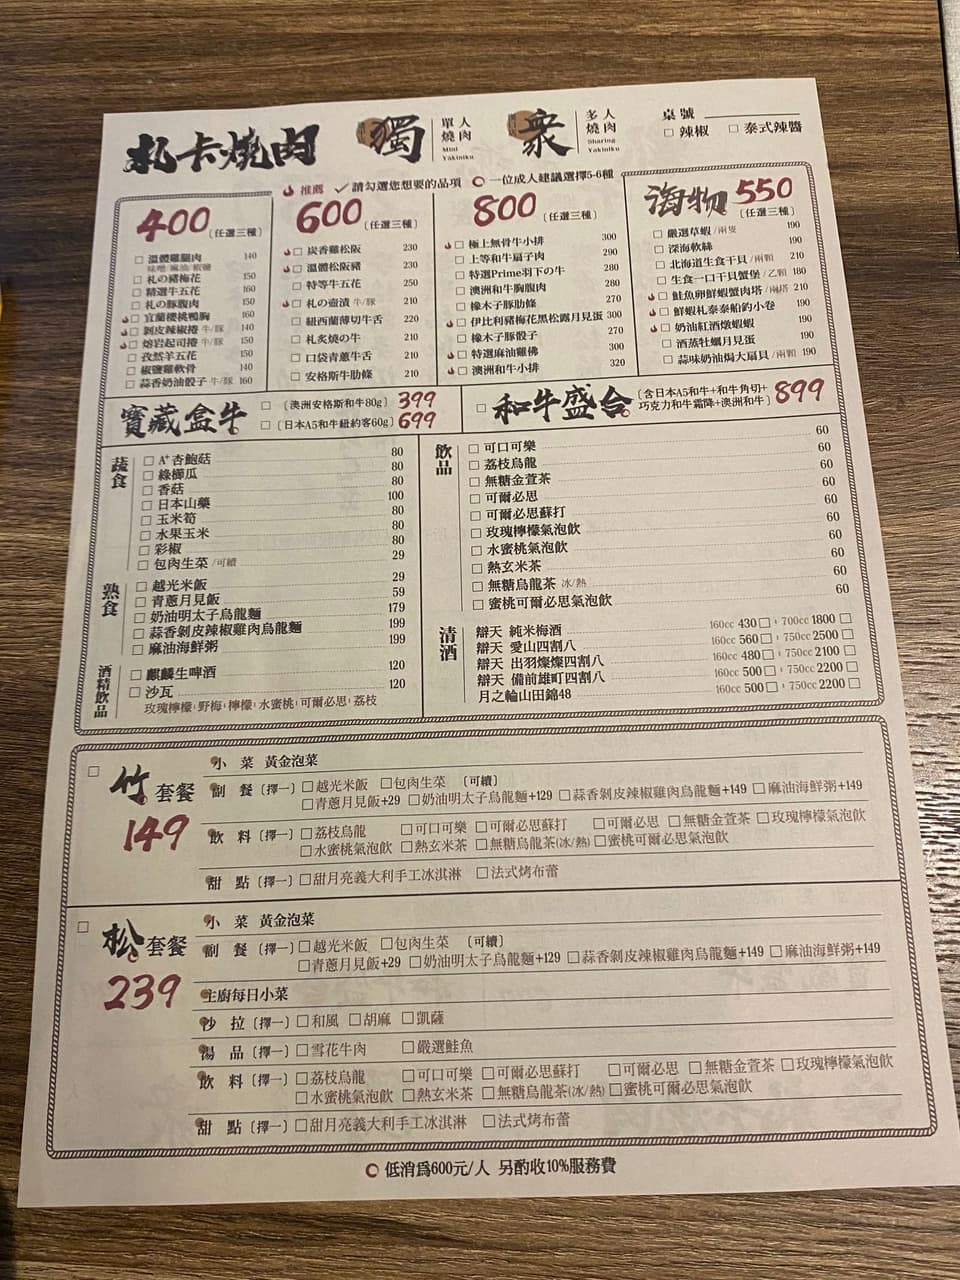 札卡燒肉
獨
單人燒肉
Mini Yakiniku
眾
多人燒肉
Sharing Yakiniku
桌號
□ 辣椒 □ 泰式辣醬
推薦 ✓請勾選您想要的品項 一位成人建議選擇5-6種
400 (任選三種)
□ 溫體雞腿肉 140
味噌/麻油/椒鹽
□ 札の豬梅花 150
□ 精選牛五花 160
□ 札の豚腹肉 150
□ 宜蘭櫻桃鴨胸 160
□ 剝皮辣椒捲 牛/豚 140
□ 熔岩起司捲 牛/豚 150
□ 孜然羊五花 150
□ 椒鹽雞軟骨 140
□ 蒜香奶油骰子 牛/豚 160
600 (任選三種)
□ 炭香雞松阪 230
□ 溫體松阪豬 230
□ 特等牛五花 250
□ 札の壺漬 牛/豚 210
□ 紐西蘭薄切牛舌 220
□ 札炙燒の牛 210
□ 口袋青蔥牛舌 210
□ 安格斯牛肋條 210
800 (任選三種)
□ 極上無骨牛小排 300
□ 上等和牛扇子肉 290
□ 特選Prime羽下の牛 280
□ 澳洲和牛胸腹肉 280
□ 橡木子豚肋條 270
□ 伊比利豬梅花黑松露月見蛋 300
□ 橡木豚骰子 270
□ 特選麻油雞佛 300
□ 澳洲和牛小排 320
海物 550 (任選三種)
□ 嚴選草蝦/兩隻 190
□ 深海軟絲 190
□ 北海道生食干貝/兩顆 210
□ 生食一口干貝蟹堡/乙顆 180
□ 鮭魚卵鮮蝦蟹肉塔/兩塔 210
□ 鮮蝦札泰泰船釣小卷 190
□ 奶油紅酒燉蝦蝦 190
□ 酒蒸牡蠣月見蛋 190
□ 蒜味奶油焗大扇貝/兩顆 190
寶藏盒牛
□ 〔澳洲安格斯和牛80g〕 399
□ 〔日本A5和牛紐約客60g〕 699
□ 和牛盛合 〔含日本A5和牛+和牛角切+巧克力和牛霜降+澳洲和牛〕 899
蔬食
□ A+杏鮑菇 80
□ 綠櫛瓜 80
□ 香菇 80
□ 日本山藥 100
□ 玉米筍 80
□ 水果玉米 80
□ 彩椒 80
□ 包肉生菜/可續 29
熟食
□ 越光米飯 29
□ 青蔥月見飯 59
□ 奶油明太子烏龍麵 179
□ 蒜香剝皮辣椒雞肉烏龍麵 199
□ 麻油海鮮粥 199
酒精飲品
□ 麒麟生啤酒 120
□ 沙瓦 120
玫瑰檸檬,野梅,檸檬,水蜜桃,可爾必思,荔枝
飲品
□ 可口可樂 60
□ 荔枝烏龍 60
□ 無糖金萱茶 60
□ 可爾必思 60
□ 可爾必思蘇打 60
□ 玫瑰檸檬氣泡飲 60
□ 水蜜桃氣泡飲 60
□ 熱玄米茶 60
□ 無糖烏龍茶 冰/熱 60
□ 蜜桃可爾必思氣泡飲 60
清酒
辯天 純米梅酒 160cc 430 □ , 700cc 1800 □
辯天 愛山四割八 160cc 560 □ , 750cc 2500 □
辯天 出羽燦燦四割八 160cc 480 □ , 750cc 2100 □
辯天 備前雄町四割八 160cc 500 □ , 750cc 2200 □
月之輪山田錦48 160cc 500 □ , 750cc 2200 □
□ 竹套餐 149
小菜 黃金泡菜
副餐〔擇一〕 □越光米飯 □包肉生菜 〔可續〕
□青蔥月見飯+29 □奶油明太子烏龍麵+129 □蒜香剝皮辣椒雞肉烏龍麵+149 □麻油海鮮粥+149
飲料〔擇一〕 □荔枝烏龍 □可口可樂 □可爾必思蘇打 □可爾必思 □無糖金萱茶 □玫瑰檸檬氣泡飲
□水蜜桃氣泡飲 □熱玄米茶 □無糖烏龍茶(冰/熱) □蜜桃可爾必思氣泡飲
甜點〔擇一〕 □甜月亮義大利手工冰淇淋 □法式烤布蕾
□ 松套餐 239
小菜 黃金泡菜
副餐〔擇一〕 □越光米飯 □包肉生菜 〔可續〕
□青蔥月見飯+29 □奶油明太子烏龍麵+129 □蒜香剝皮辣椒雞肉烏龍麵+149 □麻油海鮮粥+149
主廚每日小菜
沙拉〔擇一〕 □和風 □胡麻 □凱薩
湯品〔擇一〕 □雪花牛肉 □嚴選鮭魚
飲料〔擇一〕 □荔枝烏龍 □可口可樂 □可爾必思蘇打 □可爾必思 □無糖金萱茶 □玫瑰檸檬氣泡飲
□水蜜桃氣泡飲 □熱玄米茶 □無糖烏龍茶(冰/熱) □蜜桃可爾必思氣泡飲
甜點〔擇一〕 □甜月亮義大利手工冰淇淋 □法式烤布蕾
低消為600元/人 另酌收10%服務費